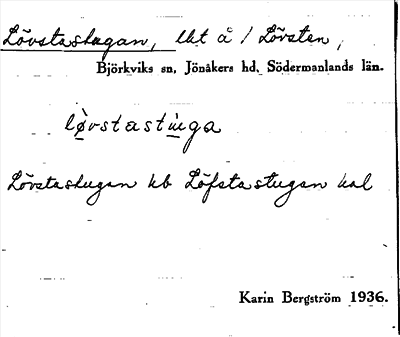 Lövstastugan, lht å / Lövsten,
Björkviks sn, Jönåkers hd, Södermanlands län.
lø̀vstastùga
Lövstastugan kb Löfstastugan hal
Karin Bergström 1936.